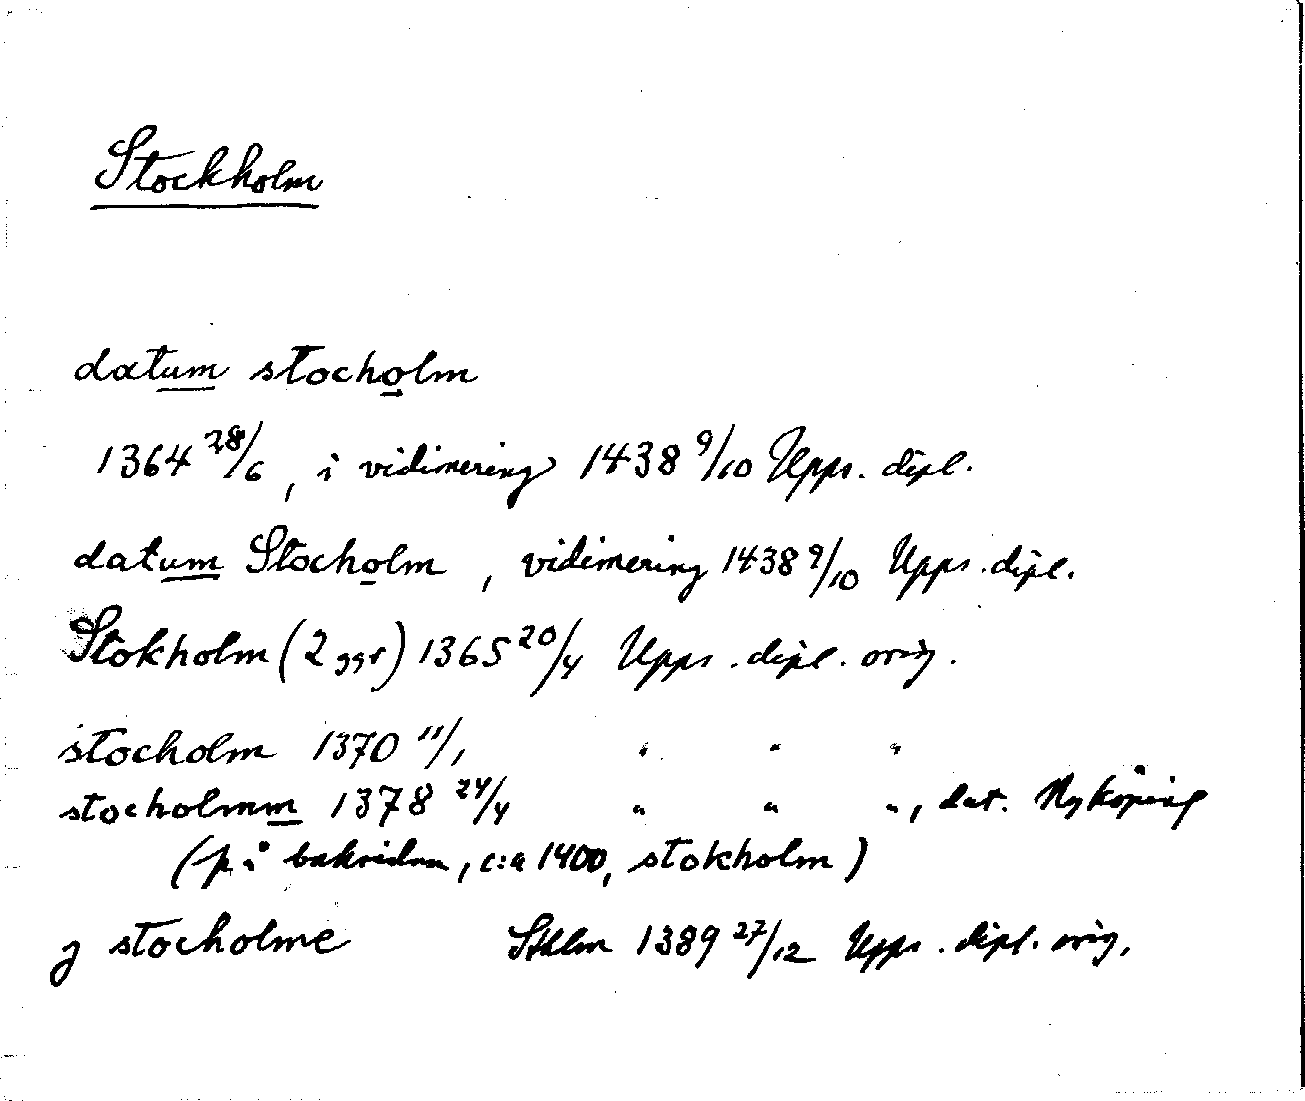 Stockholm
datum stocholm
1364 28/6, i vidimering 1438 9/10 Upps. dipl.
datum Stocholm, vidimering 1438 9/10 Upps. dipl.
Stokholm (2 ggr) 1365 20/4 Upps. dipl. orig.
stocholm 1370 11/1 " " "
stocholmm 1378 24/4 " " ", dat. Nyköping
(på baksidan, c:a 1400, stokholm)
j stocholme Sthlm 1389 27/12 Upps. dipl. orig.